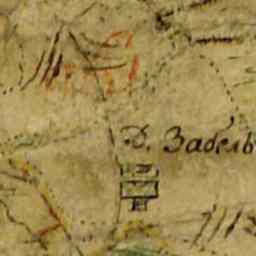 Д. Забель